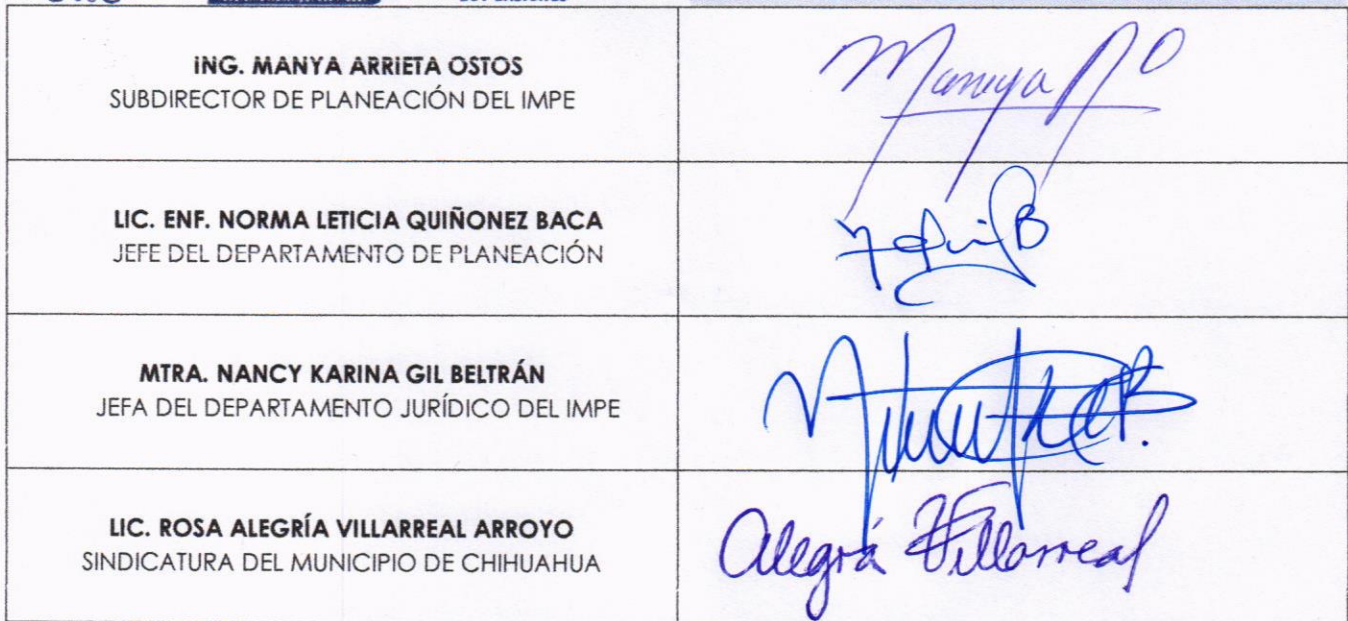 ING. MANYA ARRIETA OSTOS
SUBDIRECTOR DE PLANEACIÓN DEL IMPE
Manya AO
LIC. ENF. NORMA LETICIA QUIÑONEZ BACA
JEFE DEL DEPARTAMENTO DE PLANEACIÓN
MTRA. NANCY KARINA GIL BELTRÁN
JEFA DEL DEPARTAMENTO JURÍDICO DEL IMPE
LIC. ROSA ALEGRÍA VILLARREAL ARROYO
SINDICATURA DEL MUNICIPIO DE CHIHUAHUA
Alegría Villarreal